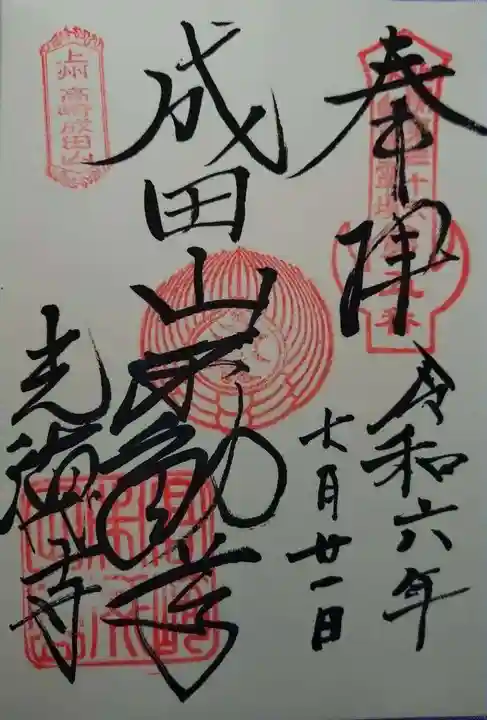 奉拝
令和六年
七月廿一日
成田山不動尊
光徳寺
上州 高崎成田山